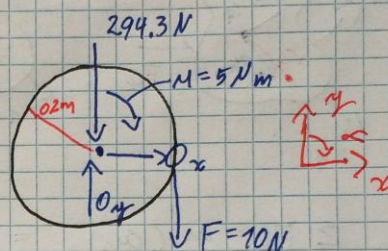 294.3 N
M = 5 N m
.02m
O x
O y
F = 10N
y
x